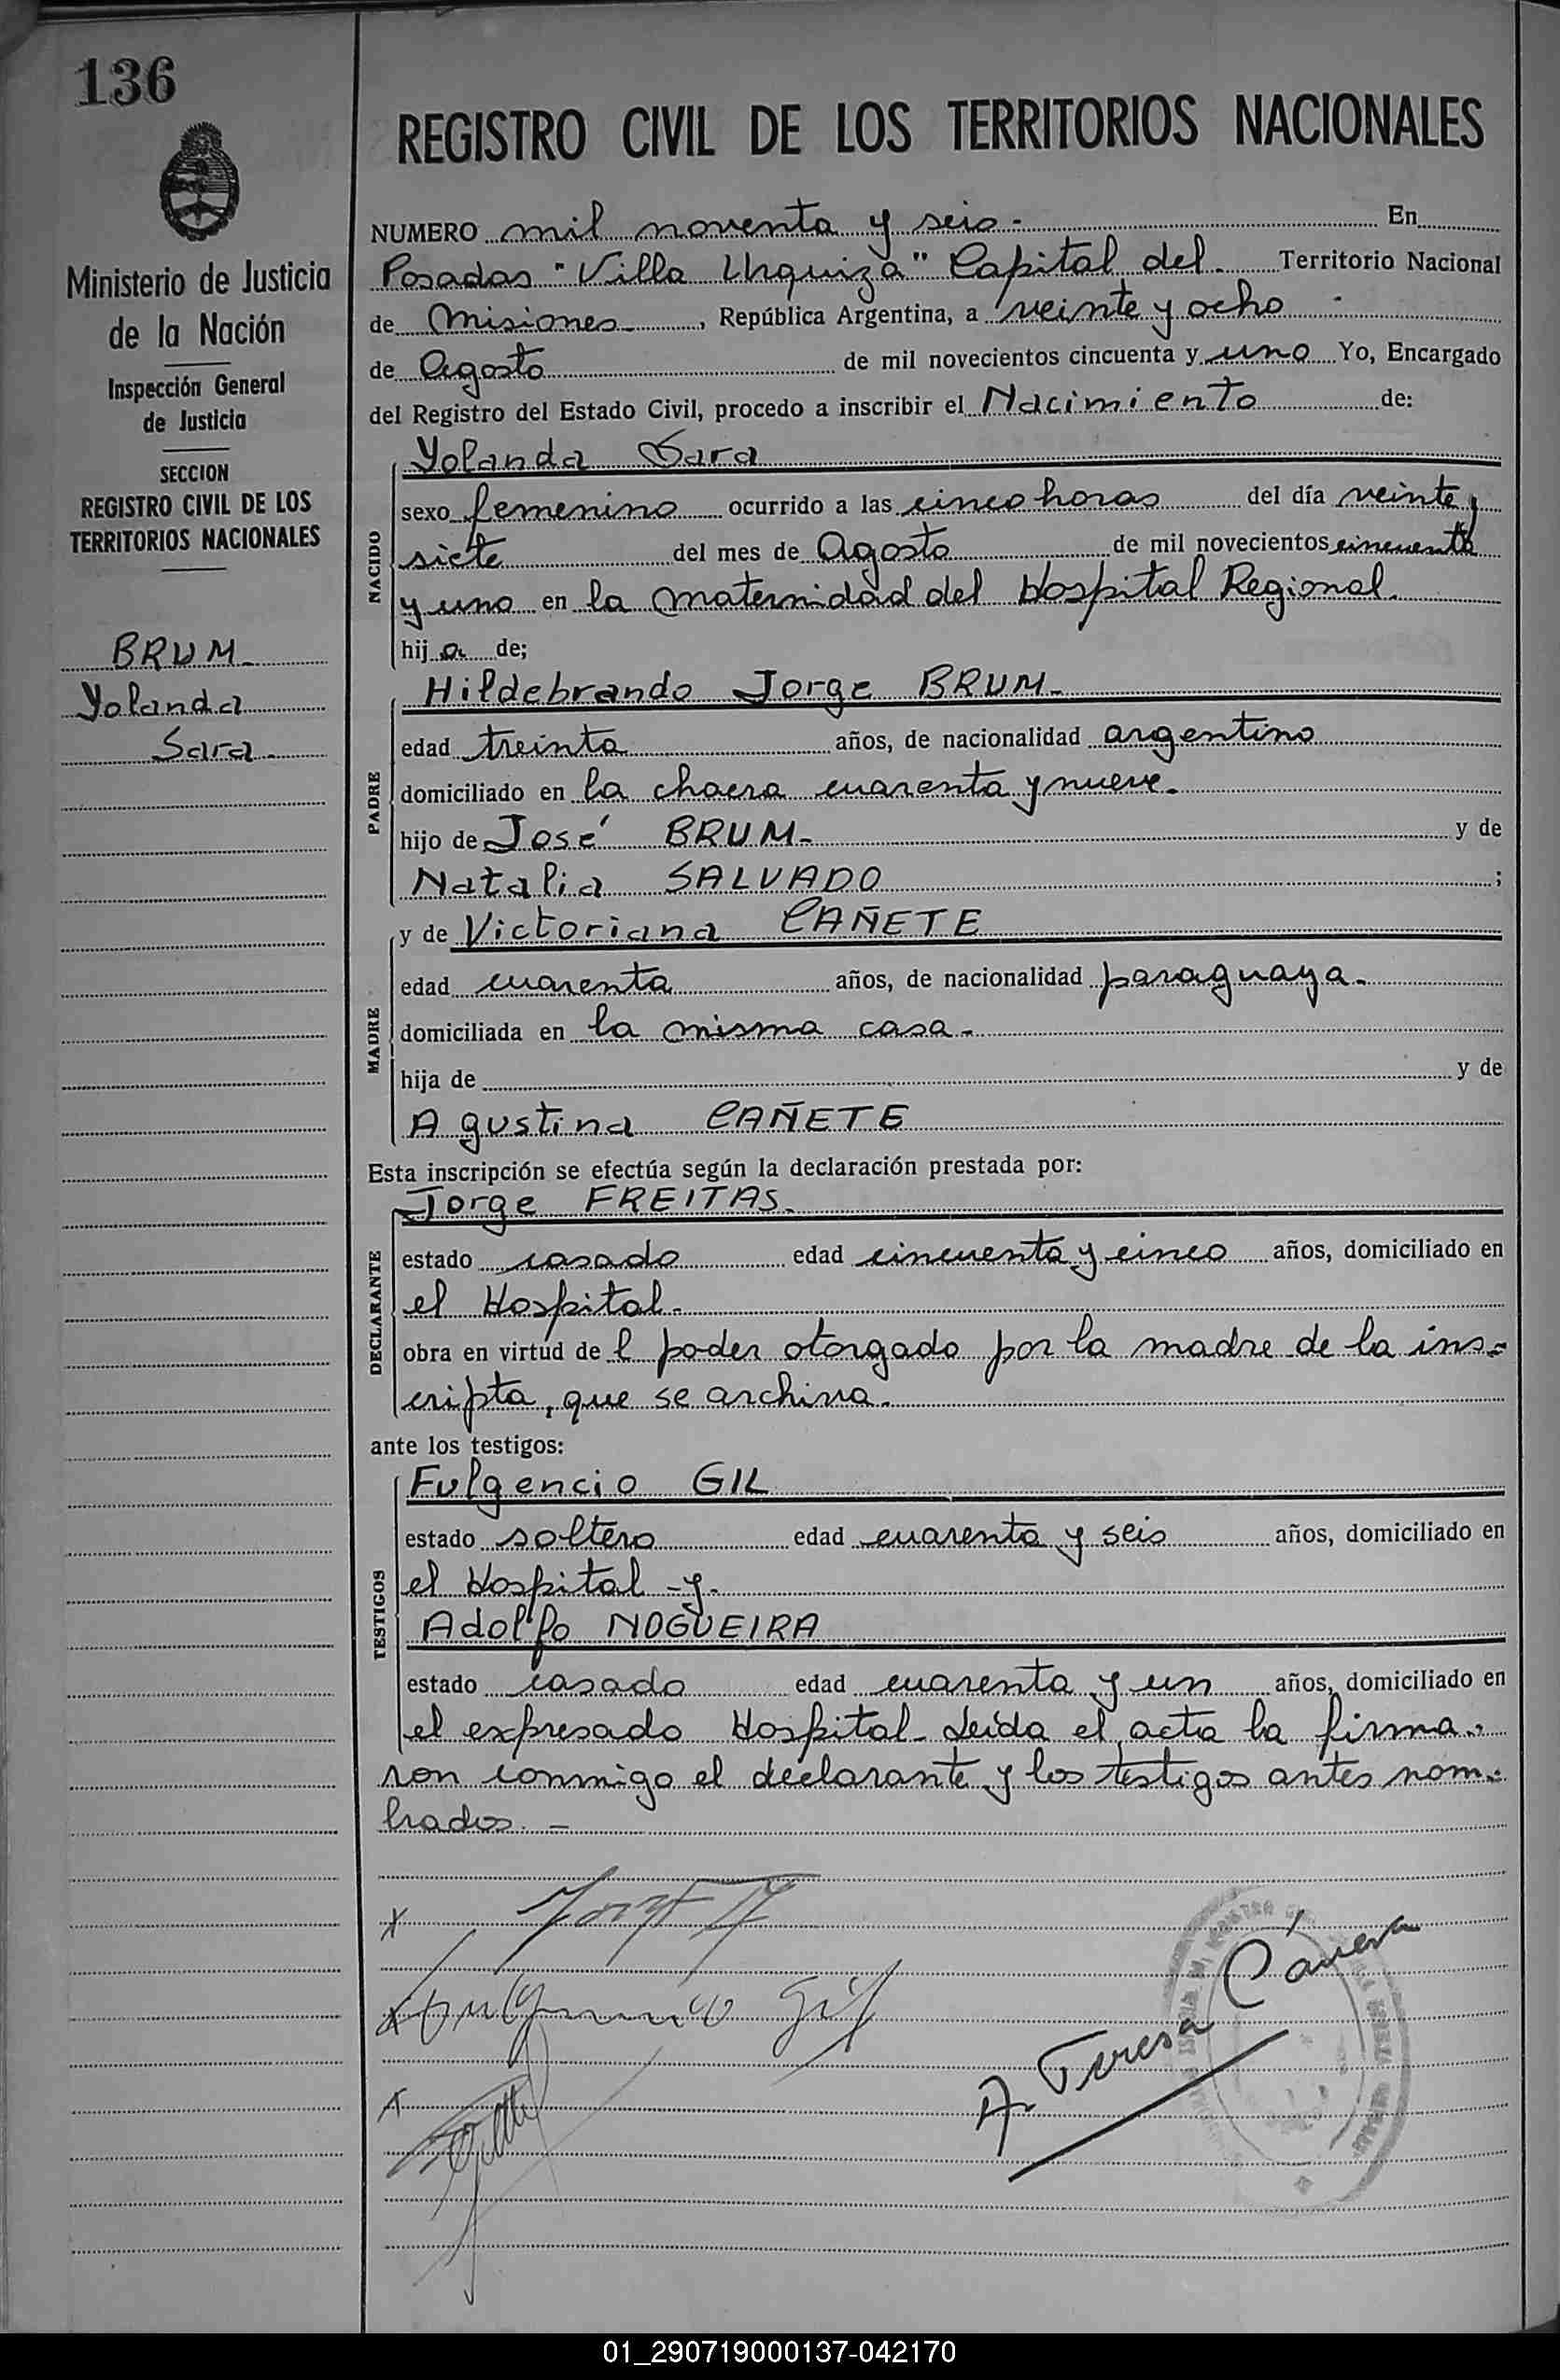 136
Ministerio de Justicia
de la Nación
Inspección General
de Justicia
SECCION
REGISTRO CIVIL DE LOS
TERRITORIOS NACIONALES
BRUM.
Yolanda
Sara.
REGISTRO CIVIL DE LOS TERRITORIOS NACIONALES
NUMERO mil noventa y seis. En
Posadas "Villa Urquiza" Capital del. Territorio Nacional
de Misiones, República Argentina, a veinte y ocho
de Agosto de mil novecientos cincuenta y uno Yo, Encargado
del Registro del Estado Civil, procedo a inscribir el Nacimiento de:
NACIDO
Yolanda Sara
sexo femenino ocurrido a las cinco horas del día veinte y
siete del mes de Agosto de mil novecientos cincuenta
y uno en la maternidad del Hospital Regional.
hija de;
PADRE
Hildebrando Jorge BRUM.
edad treinta años, de nacionalidad argentino
domiciliado en la chacra cuarenta y nueve.
hijo de José BRUM. y de
Natalia SALVADO ;
MADRE
y de Victoriana CAÑETE
edad cuarenta años, de nacionalidad paraguaya.
domiciliada en la misma casa.
hija de y de
Agustina CAÑETE
Esta inscripción se efectúa según la declaración prestada por:
DECLARANTE
Jorge FREITAS.
estado casado edad cincuenta y cinco años, domiciliado en
el Hospital.
obra en virtud de l poder otorgado por la madre de la ins=
cripta, que se archiva.
ante los testigos:
TESTIGOS
Fulgencio GIL
estado soltero edad cuarenta y seis años, domiciliado en
el Hospital - y.
Adolfo NOGUEIRA
estado casado edad cuarenta y un años, domiciliado en
el expresado Hospital. Leída el acta la firma=
ron conmigo el declarante y los testigos antes nom=
brados. -
x
x Fulgencio Gil
x
A. Teresa
01_290719000137-042170